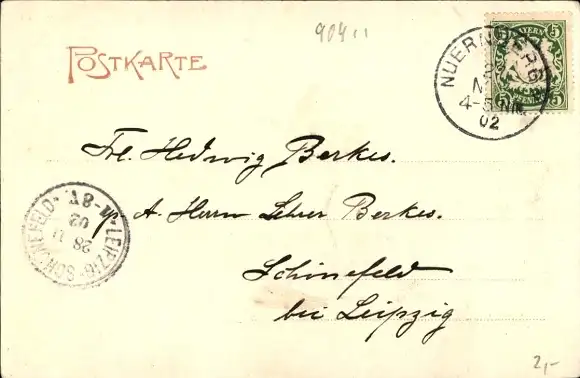 904
POSTKARTE
BAYERN
5 5
PFENNIG
NUERNBERG
4-5 NM.
02
Frl. Hedwig Berkes.
p. A. Herrn Lehrer Berkes.
Schönefeld
bei Leipzig
LEIPZIG-SCHÖNEFELD
7-8 V.
02
2,-